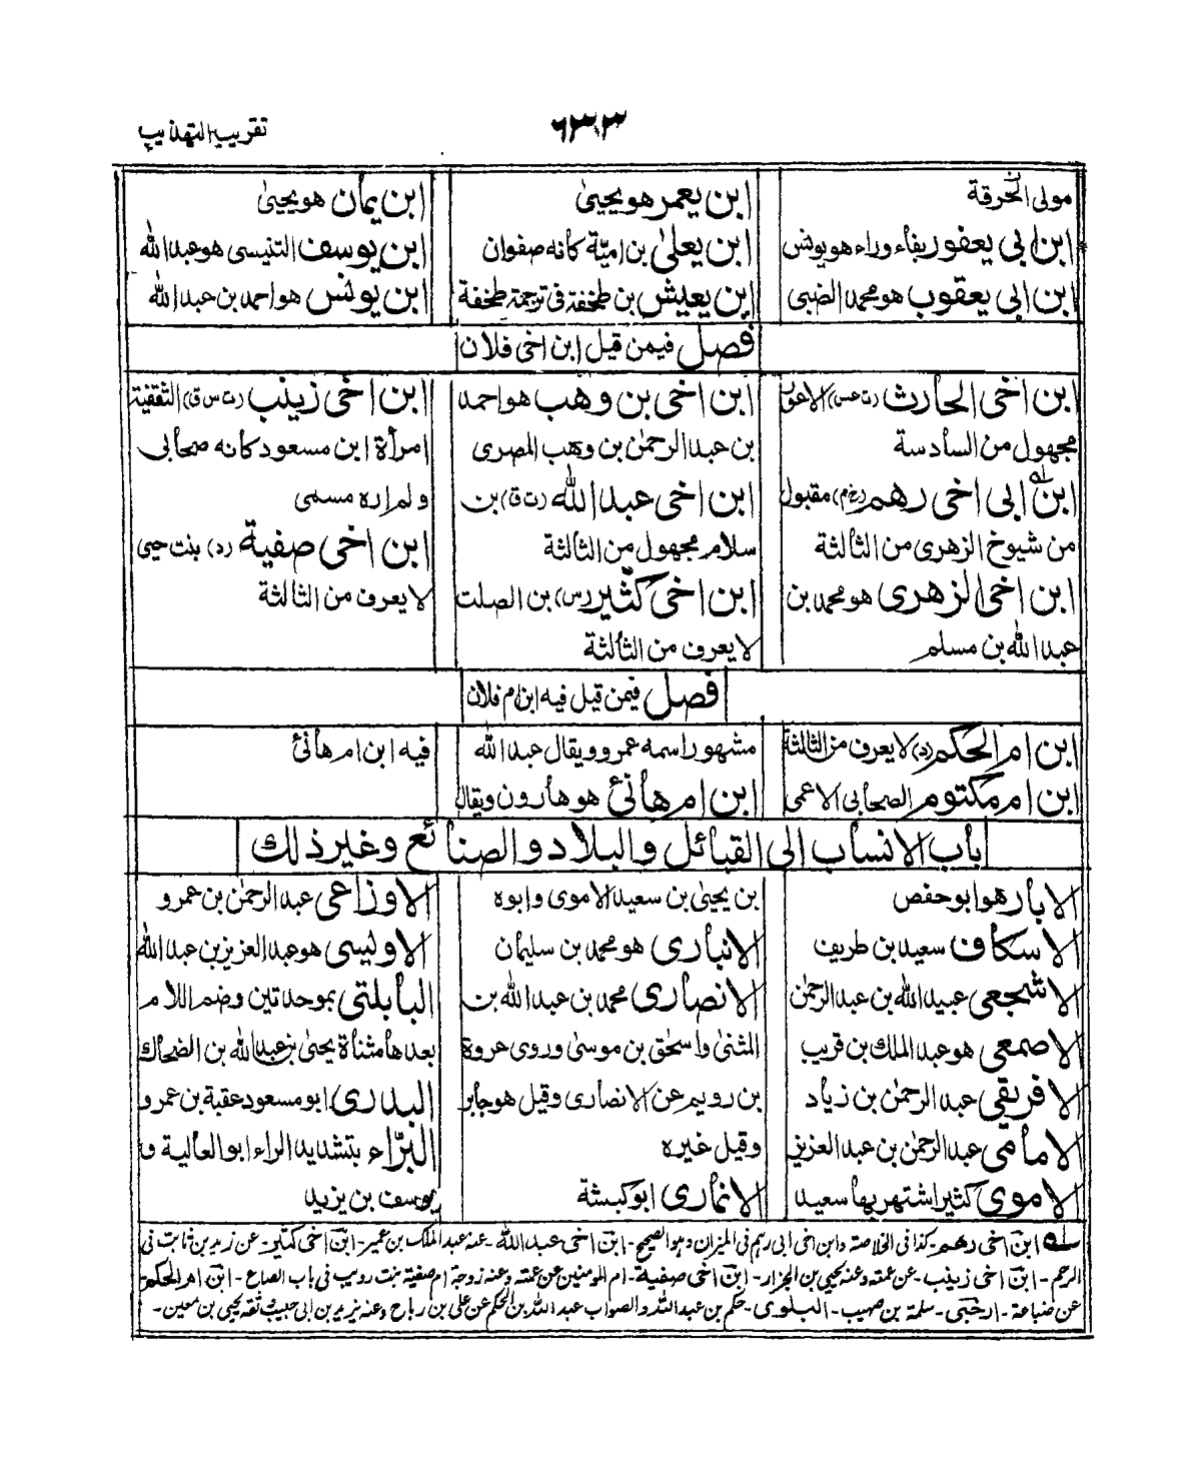 تقريب التهذيب
٦٣٣
مولى الحرقة
ابن ابى يعفور بفاء وراء هو يونس
ابن ابى يعقوب هو محمد الضبى
ابن يعمر هو يحيىٰ
ابن يعلىٰ بن اميّة كانه صفوان
ابن يعيش بن طخفة فى ترجمة طخفة
ابن يمان هو يحيىٰ
ابن يوسف التنيسى هو عبد الله
ابن يونس هو احمد بن عبد الله
فصل فيمن قيل ابن اخى فلان
ابن اخى الحارث (ت عس) الاعور
مجهول من السادسة
ابن ابى اخى رهم (بخ م) مقبول
من شيوخ الزهرى من الثالثة
ابن اخى الزهرى هو محمد بن
عبد الله بن مسلم
ابن اخى بن وهب هو احمد
بن عبد الرحمٰن بن وهب المصرى
ابن اخى عبد الله (ت ق) بن
سلام مجهول من الثالثة
ابن اخى كثير (س) بن الصلت
لا يعرف من الثالثة
ابن اخى زينب (ت س ق) الثقفية
امرأة ابن مسعود كانه صحابى
ولم اره مسمى
ابن اخى صفية (د) بنت حيى
لا يعرف من الثالثة
فصل فيمن قيل فيه ابن ام فلان
ابن ام الحكم (د) لا يعرف من الثالثة
ابن ام مكتوم الصحابى الاعمى
مشهور اسمه عمرو ويقال عبد الله
ابن ام هانئ هو هارون ويقال
فيه ابن ام هانئ
باب الانساب الى القبائل والبلاد والصنائع وغير ذلك
الابار هو ابو حفص
الاسكاف سعيد بن طريف
الاشجعى عبيد الله بن عبد الرحمٰن
الاصمعى هو عبد الملك بن قريب
الافريقى عبد الرحمٰن بن زياد
الامامى عبد الرحمٰن بن عبد العزيز
الاموى كثير اشتهر بها سعيد
بن يحيىٰ بن سعيد الاموى وابوه
الانبارى هو محمد بن سليمان
الانصارى محمد بن عبد الله بن
المثنىٰ واسحٰق بن موسىٰ وروى عروة
بن رويم عن الانصارى وقيل هو جابر
وقيل غيره
الانمارى ابو كبشة
الاوزاعى عبد الرحمٰن بن عمرو
الاوليسى هو عبد العزيز بن عبد الله
البابلتى بموحدتين وضم اللام
بعدها مثناة يحيىٰ بن عبد الله بن الضحاك
البدرى ابو مسعود عقبة بن عمرو
البرّاء بتشديد الراء ابو العالية و
يوسف بن يزيد
له ابن اخى رهم - كذا فى الخلاصة وابن اخى ابى رهم فى الميزان وهو الصحيح - ابن اخى عبد الله - عنه عبد الملك بن عمير - ابن اخى كثير - عن زيد بن ثابت فى
الرجم - ابن اخى زينب - عن عمته وعنه يحيى بن الجزار - ابن اخى صفية - ام المومنين عن عمته وعنه زوجة ام صفية بنت رويب فى باب الصاع - ابن ام الحكم
عن ضباعة - ارحبى - سلمة بن صهيب - البلوى - حكم بن عبد الله والصواب عبد الله بن الحكم عن على بن رباح وعنه يزيد بن ابى حبيب وثقه يحيى بن معين -